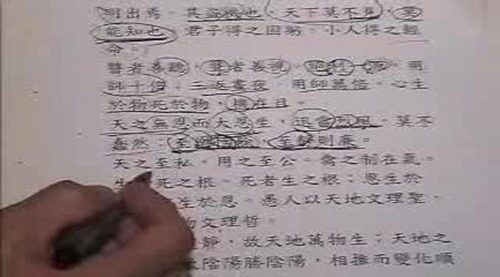 明出焉。其盜機也，天下莫不見，莫
能知也。君子得之固躬，小人得之輕
命。
瞽者善聽，聾者善視。絕利一源，用
師十倍。三返晝夜，用師萬倍。心生
於物死於物，機在目。
天之無恩而大恩生。迅雷烈風，莫不
蠢然；至樂性餘，至靜則廉。
天之至私，用之至公。禽之制在氣。
生 死之根。死者生之根；恩生於
生於恩。愚人以天地文理聖，
物文理哲。
靜，故天地萬物生；天地之
陰陽勝陰陽，相推而變化順